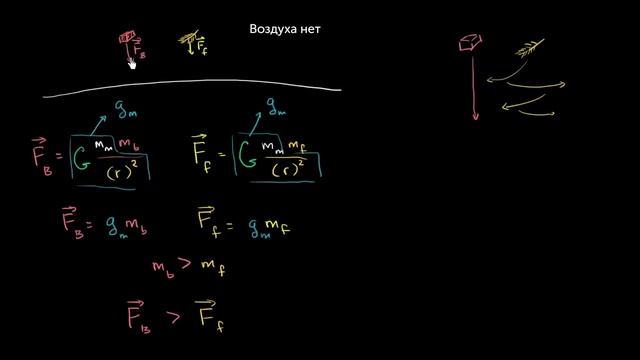 Воздуха нет
F_B F_f
g_m g_m
F_B = G m_m m_b / (r)^2 F_f = G m_m m_f / (r)^2
F_B = g_m m_b F_f = g_m m_f
m_b > m_f
F_B > F_f